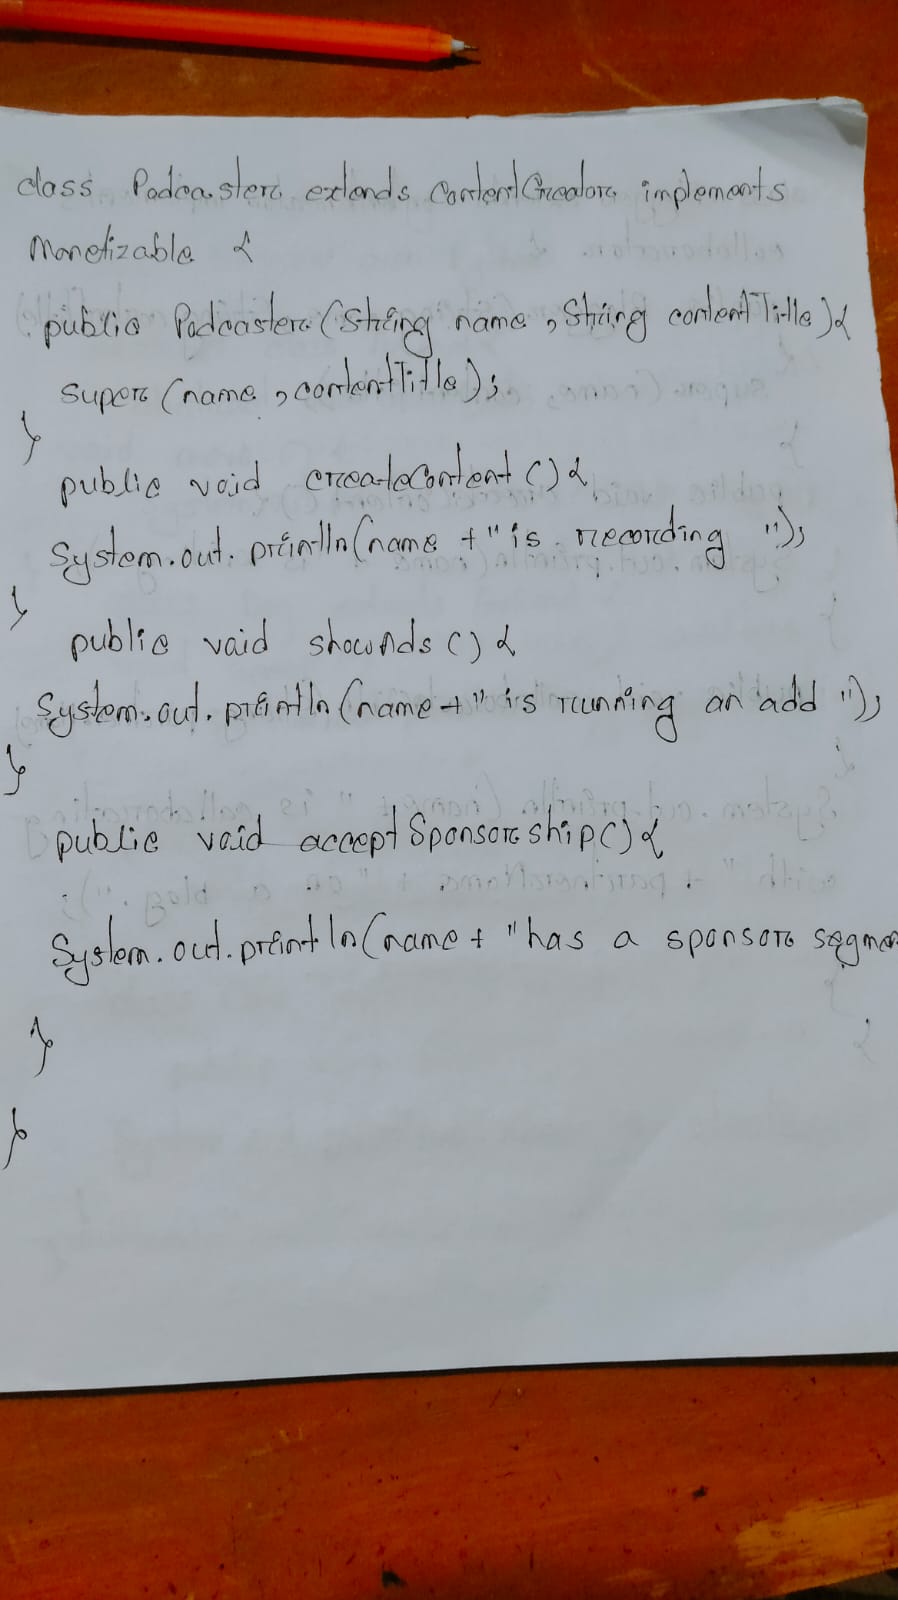 class Podcaster extends ContentCreator implements
Monetizable {
public Podcaster (String name , String contentTitle ) {
super (name , contentTitle ) ;
}
public void createContent () {
System.out. println (name + " is recording ") ;
}
public void showAds () {
System.out. println (name + " is running an add ") ;
}
public void acceptSponsorship() {
System.out.println (name + " has a sponsor segme
}
}